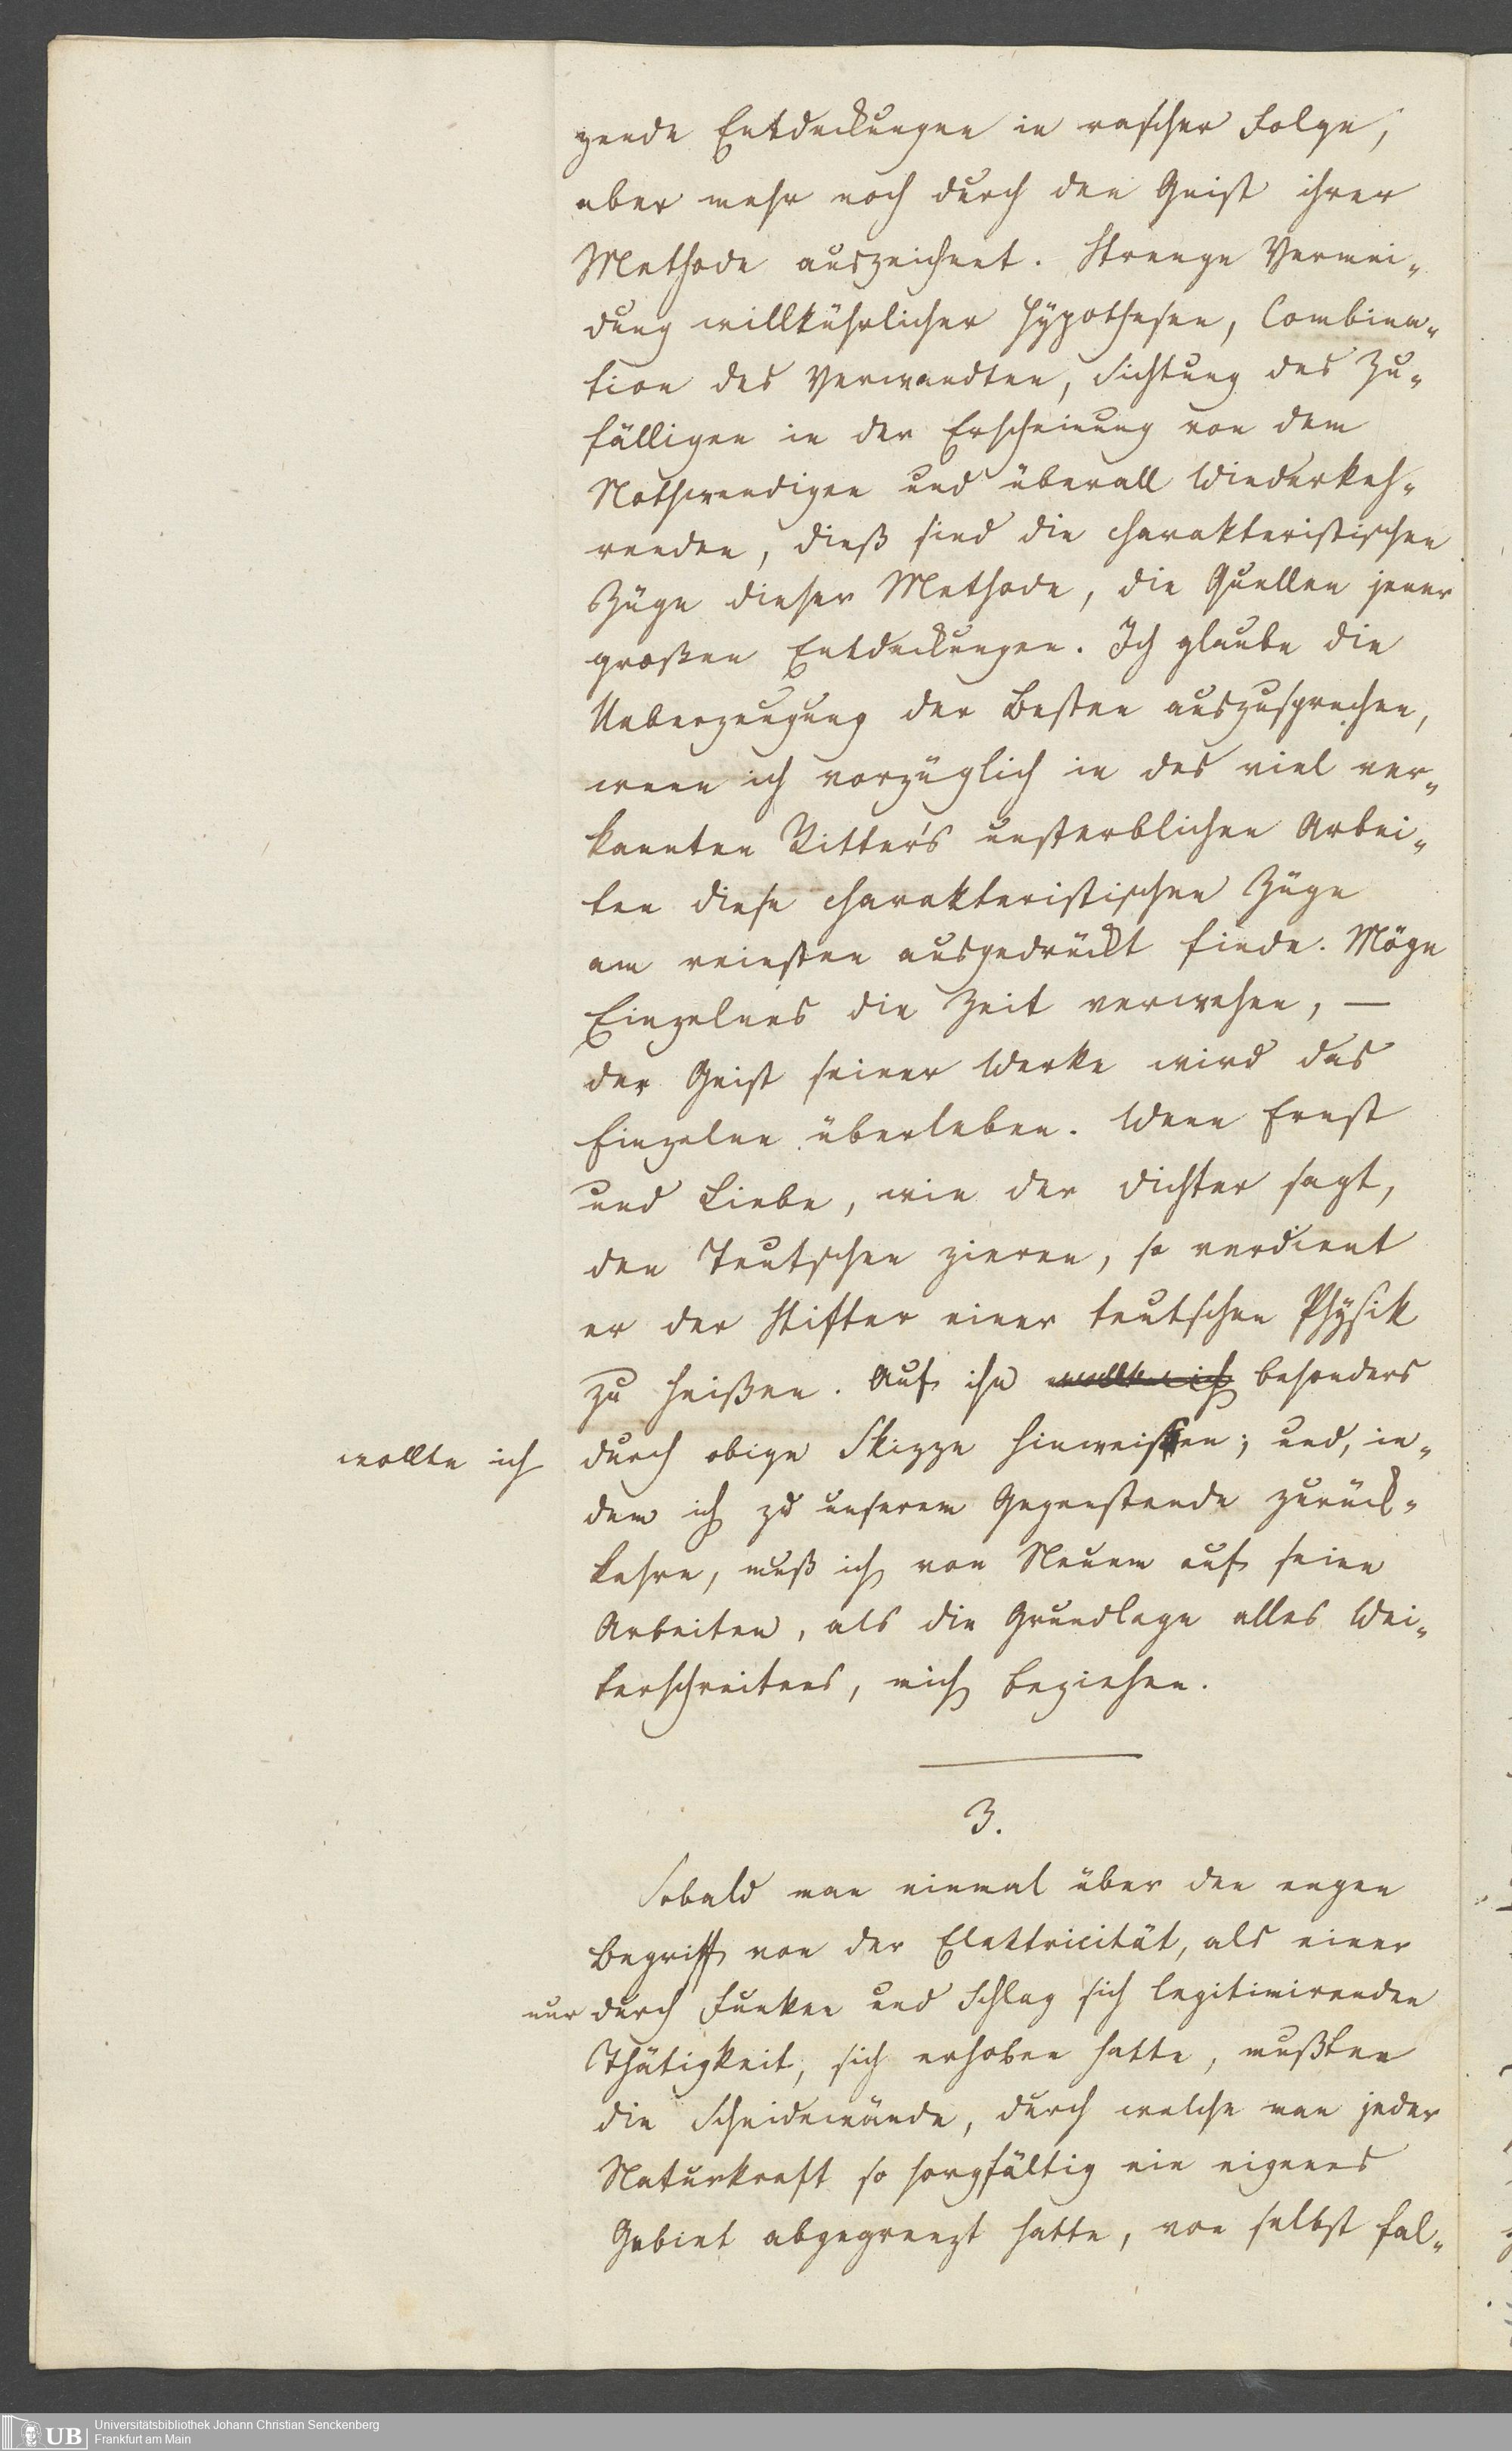 zende Entdeckungen in rascher Folge,
aber mehr noch durch den Geist ihrer
Methode auszeichnet. Strenge Vermei-
dung willkührlicher Hÿpothesen, Combina-
tion des Verwandten, Sichtung des Zu-
fälligen in der Erscheinung von dem
Nothwendigen und überall Wiederkeh-
renden, dieß sind die charakteristischen
Züge dieser Methode, die Quellen jener
großen Entdeckungen. Ich glaube die
Ueberzeugung der Besten auszusprechen,
wenn ich vorzüglich in des viel ver-
kannten Ritter's unsterblichen Arbei-
ten diese charakteristischen Züge
am reinsten ausgedrückt finde. Möge
Einzelnes die Zeit verwehen, —
der Geist seiner Werke wird das
Einzelne überleben. Wenn Ernst
und Liebe, wie der Dichter sagt,
den Teutschen zieren, so verdient
er der Stifter einer teutschen Phÿsik
zu heißen. Auf ihn wollte ich besonders
wollte ich durch obige Skizze hinweisen; und, in-
dem ich zu unserem Gegenstande zurück-
kehre, muß ich von Neuem auf seine
Arbeiten, als die Grundlage alles Wei-
terschreitens, mich beziehen.
3.
Sobald man einmal über den engen
Begriff von der Elektricität, als einer
nur durch Funken und Schlag sich legitimirenden
Thätigkeit, sich erhoben hatte, mußten
die Scheidewände, durch welche man jeder
Naturkraft so sorgfältig ein eigenes
Gebiet abgegrenzt hatte, von selbst fal-
UB
Universitätsbibliothek Johann Christian Senckenberg
Frankfurt am Main